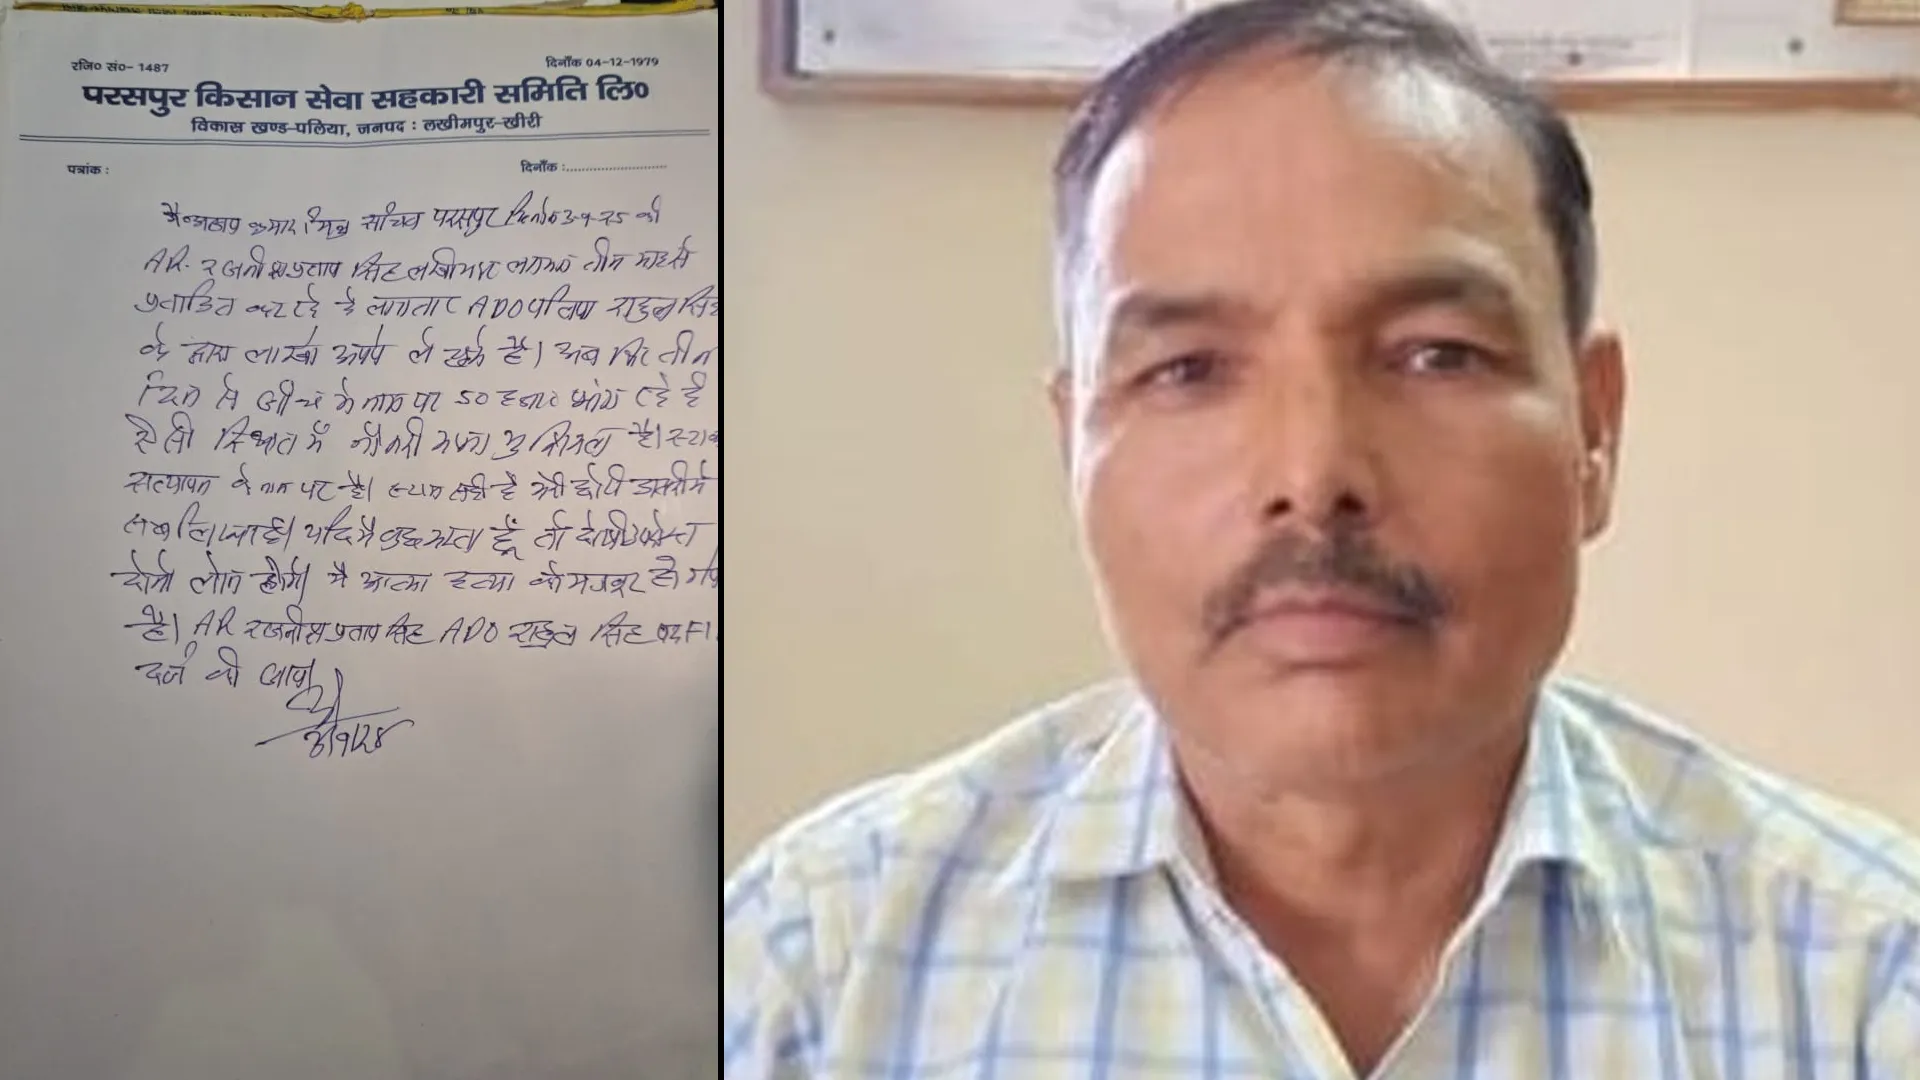 रजि० सं०- 1487
दिनाँक 04-12-1979
परसपुर किसान सेवा सहकारी समिति लि०
विकास खण्ड-पलिया, जनपद : लखीमपुर-खीरी
पत्रांक :
दिनाँक :............................
मै कुमार सचिव परसपुर को
AR. रजनीश प्रताप सिंह तीन माह से
प्रताडित कर रहे है लगातार ADO पलिया राहुल सिंह
के द्वारा लाखो रुपये ले चुके है। अब फिर तीन
दिन से जाँच के नाम पर 50 हजार मांग रहे है
ऐसी स्थित में नौकरी करना मुश्किल है।
सत्यापन के नाम पर है। मेरी छोटी डायरी मे
सब लिखा है। यदि मै हूँ तो दोषी उपरोक्त
दोनो लोग होगे। मै आत्म हत्या को मजबूर हो
है। AR रजनीश प्रताप सिंह ADO राहुल सिंह पर
दर्ज की जाय।